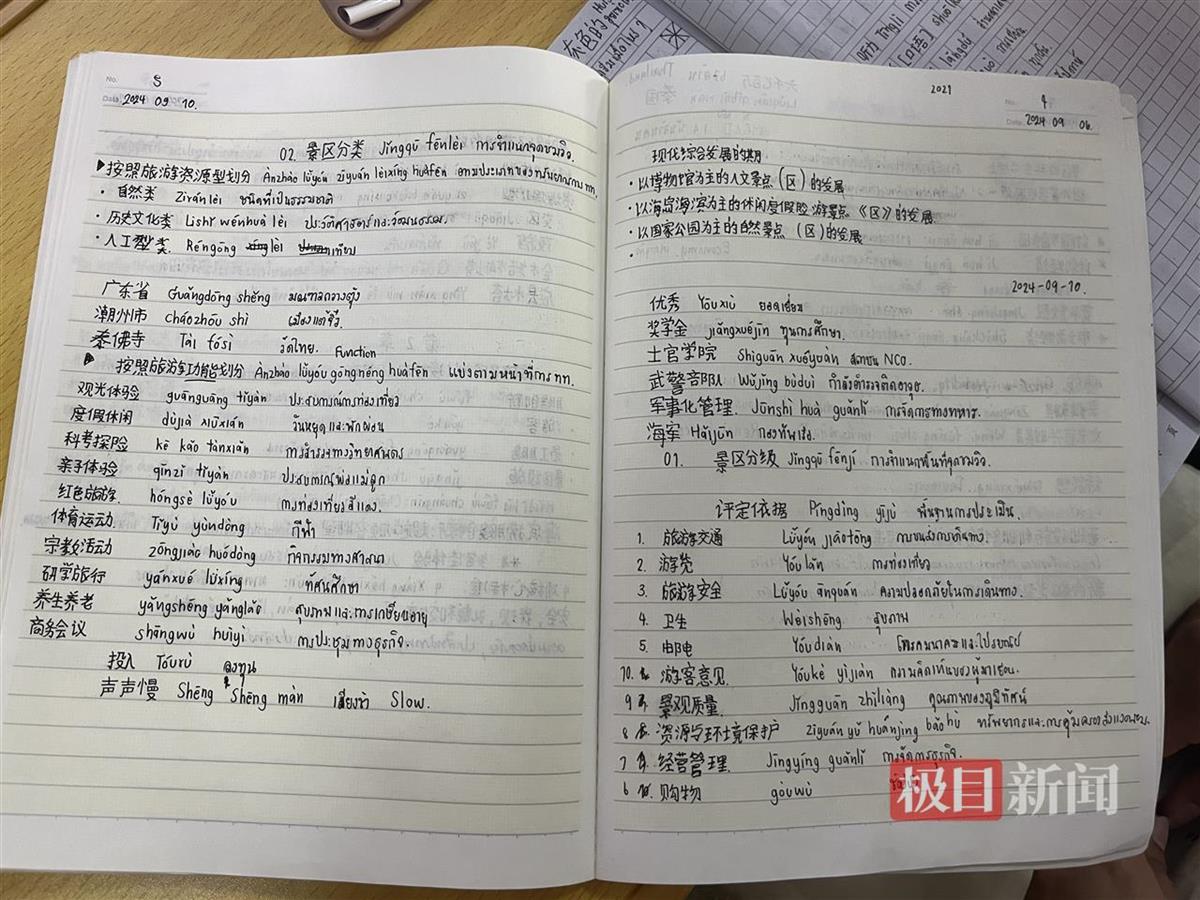 No. 5
Date 2024 09 10.
02. 景区分类 Jǐngqū fēnlèi การจำแนกจุดชมวิว.
▶按照旅游资源型划分 Anzhào lǚyóu zīyuán lèixíng huàfēn ตามประเภทของทรัพยากรการ ทท.
• 自然类 Zìrán lèi ชนิดที่เป็นธรรมชาติ
• 历史文化类 Lìshǐ wénhuà lèi ประวัติศาสตร์และวัฒนธรรม.
• 人工型类 Réngōng lèi เทียม
广东省 Guǎngdōng shěng มณฑลกวางตุ้ง
潮州市 cháozhōu shì เมืองแต้จิ๋ว.
泰佛寺 Tài fósì วัดไทย. Function
▶ 按照旅游功能划分 Anzhào lǚyóu gōngnéng huàfēn แบ่งตามหน้าที่การ ทท.
观光体验 guānguāng tǐyàn ประสบการณ์การท่องเที่ยว
度假休闲 dùjià xiūxián วันหยุดและพักผ่อน
科考探险 kē kǎo tànxiǎn การสำรวจทางวิทยาศาสตร์
亲子体验 qīnzǐ tǐyàn ประสบการณ์พ่อแม่ลูก
红色旅游 hóngsè lǚyóu การท่องเที่ยวสีแดง.
体育运动 Tǐyù yùndòng กีฬา
宗教活动 zōngjiào huódòng กิจกรรมทางศาสนา
研学旅行 yánxué lǚxíng ทัศนศึกษา
养生养老 yǎngshēng yǎnglǎo สุขภาพและการเกษียณอายุ
商务会议 shāngwù huìyì การประชุมทางธุรกิจ.
投入 Tóurù ลงทุน
声声慢 Shēng Shēng màn เสียงช้า Slow.
2021
No. 4
Date 2024 09 06.
现代综合发展的期
• 以博物馆为主的人文景点(区)的发展
• 以海岛海滨为主的休闲度假旅游景点《区》的发展
• 以国家公园为主的自然景点(区)的发展
2024-09-10.
优秀 Yōuxiù ยอดเยี่ยม
奖学金 jiǎngxuéjīn ทุนการศึกษา.
士官学院 Shìguān xuéyuàn สถาบัน NCO.
武警部队 Wǔjǐng bùduì กำลังตำรวจติดอาวุธ.
军事化管理. Jūnshì huà guǎnlǐ การจัดการทางทหาร.
海军 Hǎijūn กองทัพเรือ.
01. 景区分级 Jǐngqū fēnjí การจำแนกพื้นที่จุดชมวิว.
评定依据 Píngdìng yījù พื้นฐานการประเมิน.
1. 旅游交通 Lǚyóu jiāotōng การขนส่งการเดินทาง.
2. 游览 Yóulǎn การท่องเที่ยว
3. 旅游安全 Lǚyóu ānquán ความปลอดภัยในการเดินทาง.
4. 卫生 Wèishēng สุขภาพ
5. 邮电 Yóudiàn โทรคมนาคมและไปรษณีย์
10. 游客意见 Yóukè yìjiàn ความคิดเห็นของผู้มาเยือน.
9 景观质量. Jǐngguān zhìliàng คุณภาพของภูมิทัศน์
8 资源与环境保护 zīyuán yǔ huánjìng bǎohù ทรัพยากรและการคุ้มครองสิ่งแวดล้อม.
7 经营管理. Jīngyíng guǎnlǐ การจัดการธุรกิจ.
6 购物 gòuwù
极目新闻